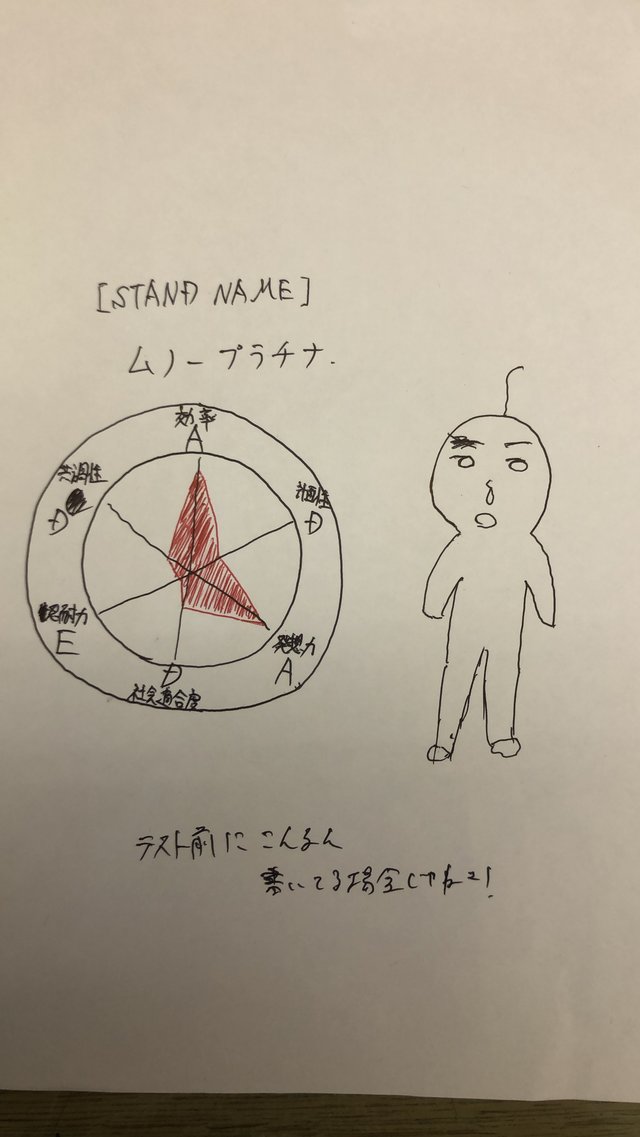 [STAND NAME]
ムノープラチナ.
効率
A
計画性
D
発想力
A
社会適合度
D
忍耐力
E
共調性
D
テスト前にこんなん
書いてる場合じゃねェ!